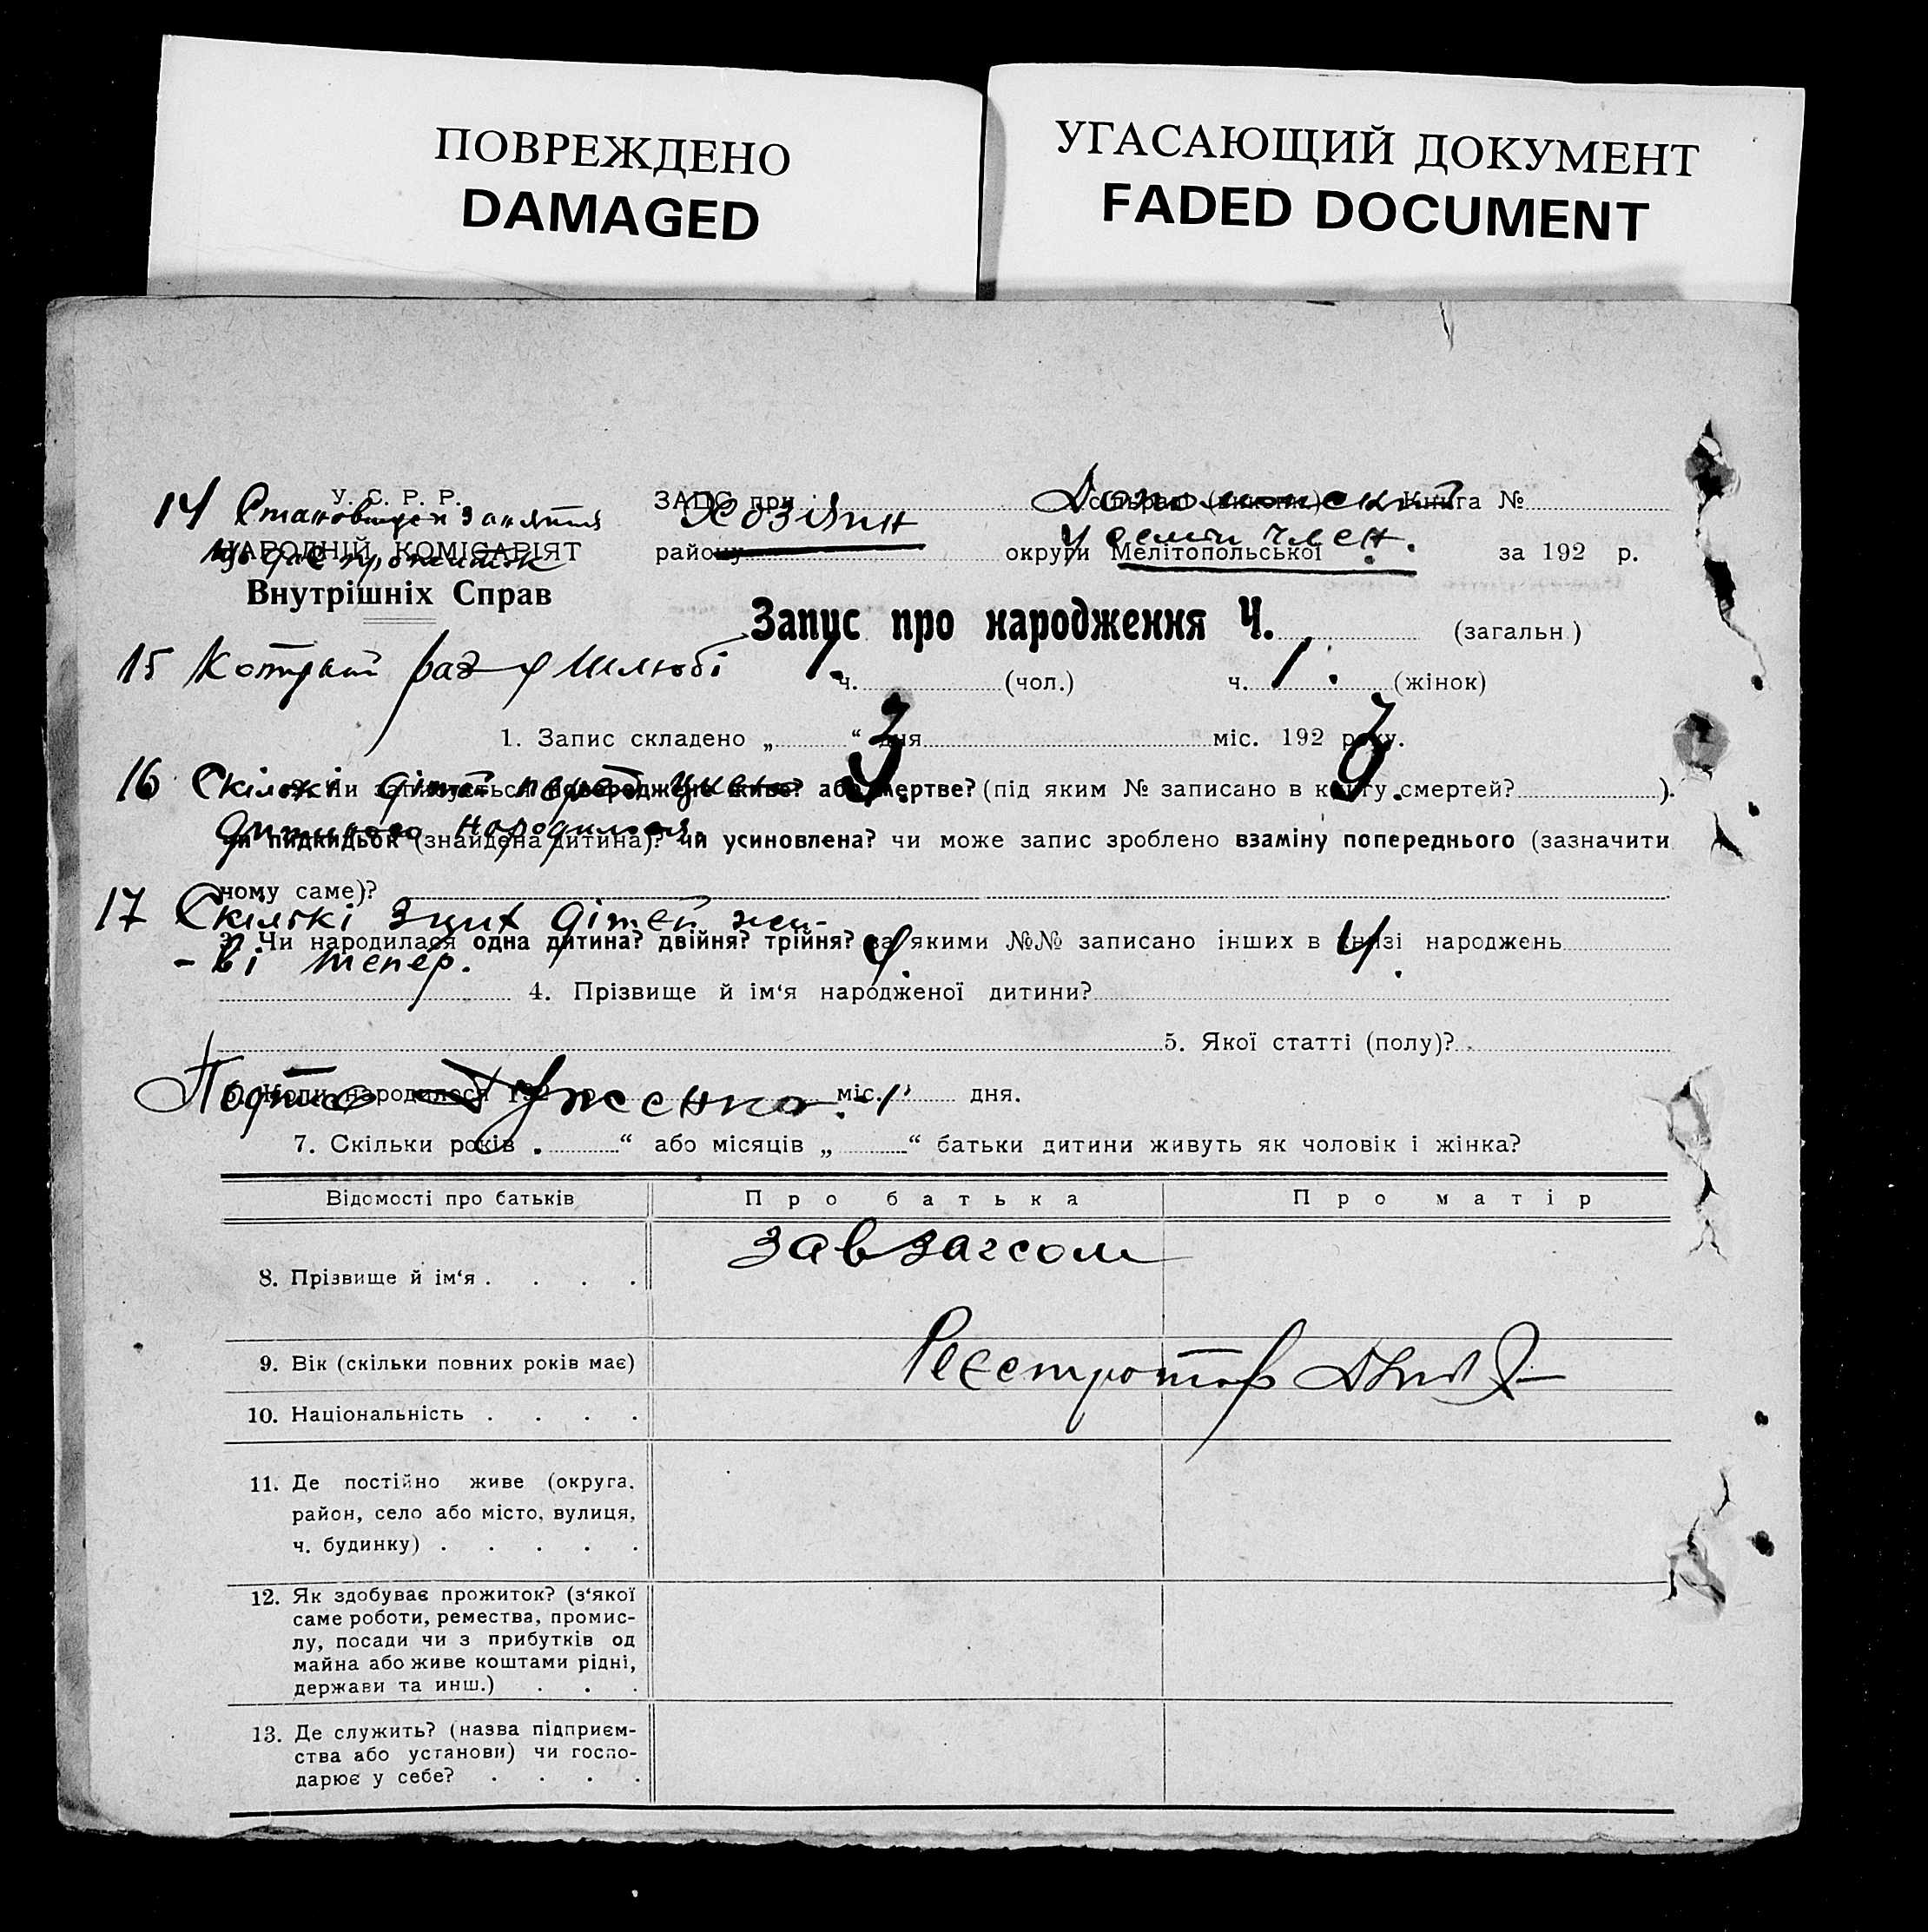 ПОВРЕЖДЕНО
DAMAGED
УГАСАЮЩИЙ ДОКУМЕНТ
FADED DOCUMENT
У. С. Р. Р.
НАРОДНІЙ КОМІСАРІЯТ
Внутрішніх Справ
ЗАГС при сільраді Книга №
району округи Мелітопольської за 192 р.
14 Становище и заняття
що дає прожиток
Хозяин
член.
Запус про народження Ч. (загальн.)
ч. (чол.) ч. (жінок)
15 Который раз у шлюбі 1. 1.
1. Запис складено „ “ дня міс. 192 року.
2. Чи записується новороджене живе? або мертве? (під яким № записано в книгу смертей? ).
чи підкидьок (знайдена дитина)? чи усиновлена? чи може запис зроблено взаміну попереднього (зазначити
ному саме)?
16 Скількі дітей
дитиною народилося.
17 Скількі з цих дітей жи-
-ві тепер. 4. 4.
3. Чи народилася одна дитина? двійня? трійня? за якими №№ записано інших в книзі народжень
4. Прізвище й ім‘я народженої дитини?
5. Якої статті (полу)?
6. Коли народилося 192 р. міс. дня.
7. Скільки років „ “ або місяців „ “ батьки дитини живуть як чоловік і жінка?
Відомості про батьків Про батька Про матір
завзагсом
8. Прізвище й ім‘я . . . .
Реєстратор
9. Вік (скільки повних років має)
10. Національність . . . .
11. Де постійно живе (округа,
район, село або місто, вулиця,
ч. будинку) . . . . .
12. Як здобуває прожиток? (з‘якої
саме роботи, ремества, промис-
лу, посади чи з прибутків од
майна або живе коштами рідні,
держави та инш.) . . .
13. Де служить? (назва підприєм-
ства або установи) чи госпо-
дарює у себе? . . . .